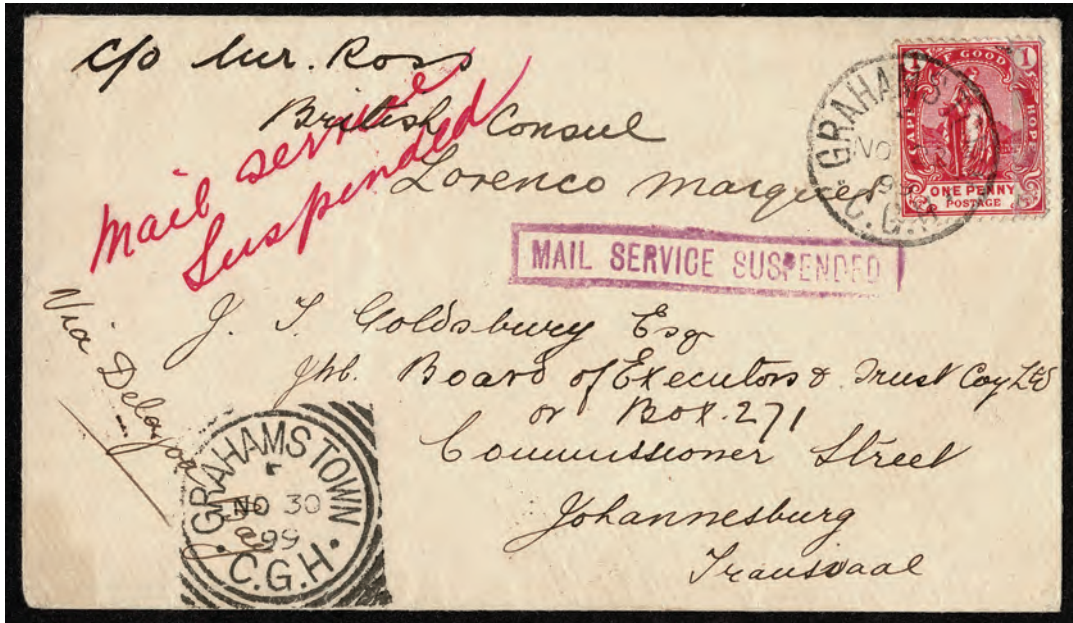 c/o Mr. Ross
British Consul
Lorenco Marques
Mail service
Suspended
MAIL SERVICE SUSPENDED
J. T. Goldsbury Esq
Jhb. Board of Executors & Trust Coy Ltd
or Box. 271
Commissioner Street
Johannesburg
Transvaal
Via Delagoa
Bay
GRAHAMSTOWN
NO 30
99
C.G.H.
GRAHAMS
NO
C.G.H
1 OF GOOD 1
CAPE
HOPE
ONE PENNY
POSTAGE